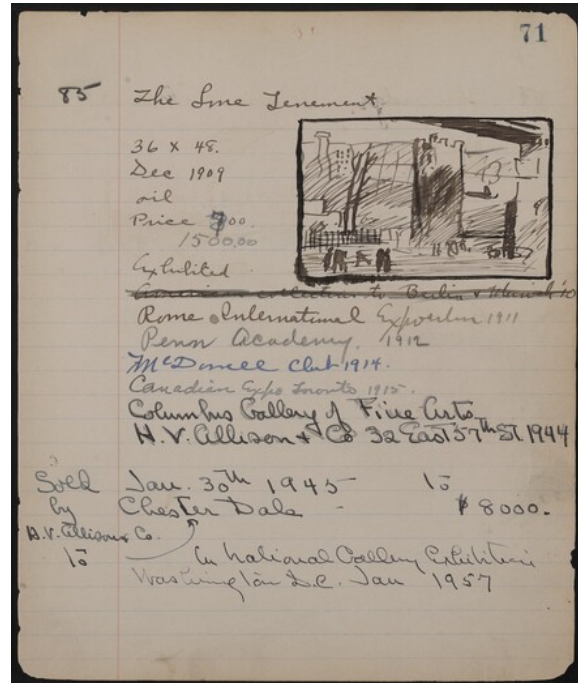 71
85 The Lone Tenement
36 x 48.
Dec 1909
oil
Price 00.
1500.00
Exhibited
American collection to Berlin & Munich '10
Rome International Exposition 1911
Penn Academy. 1912
McDowell Club 1914.
Canadian Expo Toronto 1915.
Columbus Gallery of Fine Arts
H.V. Allison & Co 32 East 57th St. 1944
Sold Jan. 30th 1945 to
by Chester Dale - $8000.
H.V. Allison & Co.
to In National Gallery Exhibition
Washington D.C. Jan 1957